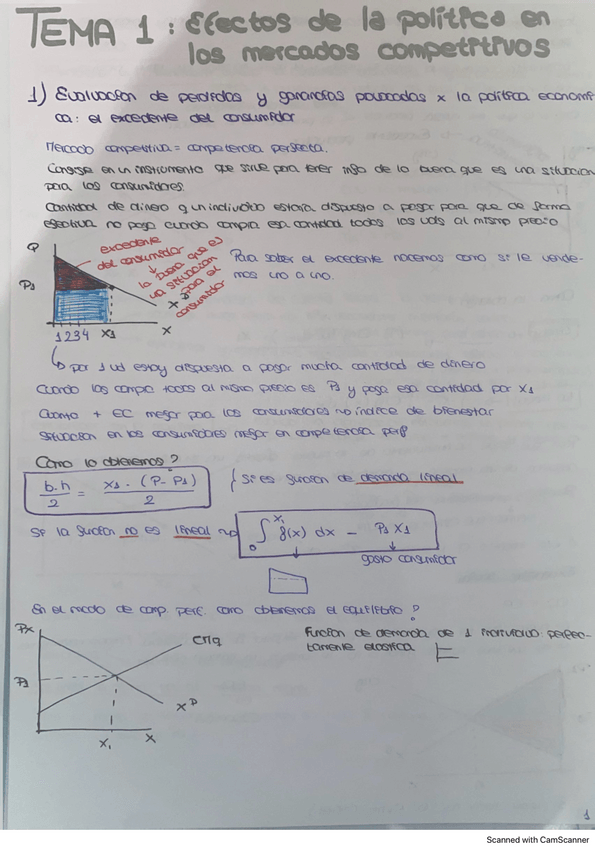 TEMA 1: Efectos de la política en
los mercados competitivos
1) Evaluación de perdidas y ganancias provocadas x la política económi-
ca: el excedente del consumidor
Mercado competitivo = competencia perfecta.
Consiste en un instrumento que sirve para tener info de lo buena que es una situación
para los consumidores.
Cantidad de dinero q un individuo estaria dispuesto a pagar para que de forma
efectiva no paga cuando compra esa cantidad todas las uds al mismo precio
Q
excedente
del consumidor
lo buena que es
la situación
para el
consumidor
P1
x D
1 2 3 4 X1
X
Para saber el excedente hacemos como si le vende-
mos uno a uno.
por 1 ud estoy dispuesta a pagar mucha cantidad de dinero
Cuando las compra todas al mismo precio es P1 y paga esa cantidad por x1
Cuanto + EC mejor para los consumidores → indice de bienestar
Situación en los consumidores mejor en competencia perf
Como lo obtenemos?
b.h / 2 = X1 . (P - P1) / 2
Si es función de demanda lineal
Si la función no es lineal → ∫ 0 X1 f(x) dx - P1 X1
gasto consumidor
En el mcdo de comp. perf. como obtenemos el equilibrio?
Px
P1
CMg
x D
X1
X
Función de demanda de 1 individuo: perfec-
tamente elastica
1
Scanned with CamScanner